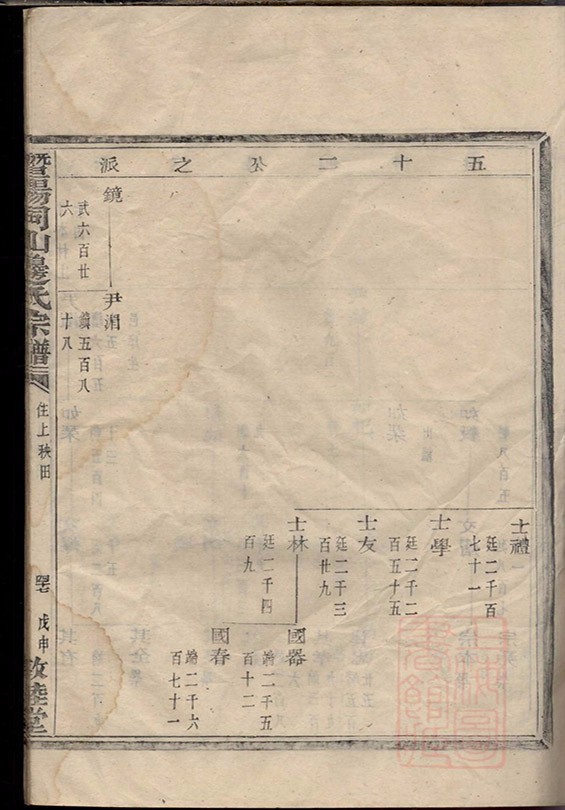 五十二公之派
士禮
廷二千百
七十一
士學
廷二千二
百五十五
士友
廷二千三
百廿九
士林
廷二千四
百九
國器
端二千五
百十二
國春
端二千六
百七十一
鏡
貳六百廿
六
尹渭
續五百八
十八
暨陽同山邊氏宗譜
住上秧田
戊申
敦睦堂